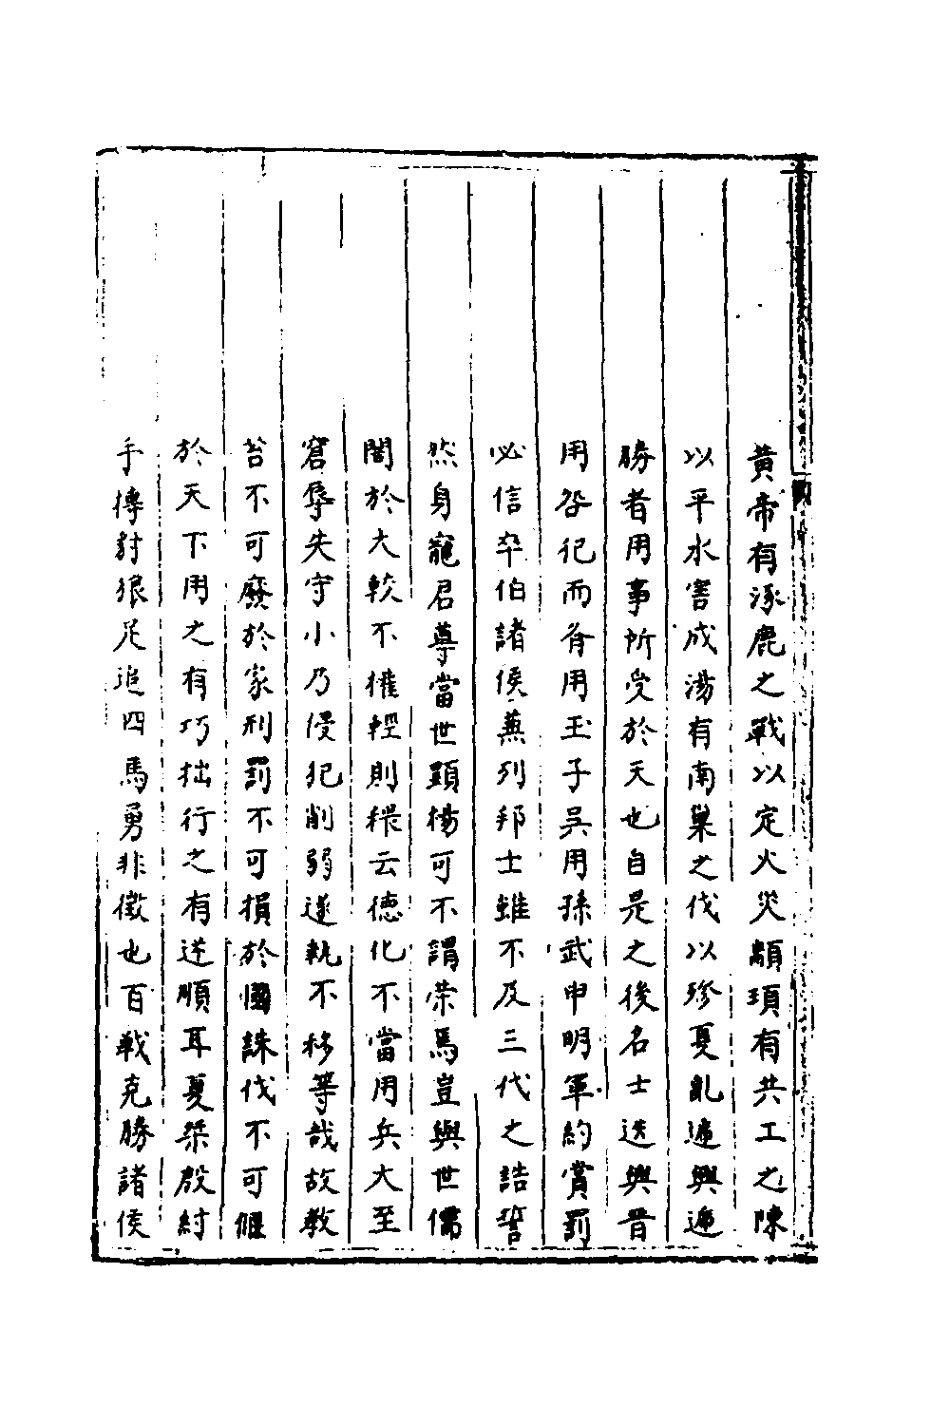 黃帝有涿鹿之戰以定火災顓頊有共工之陳
以平水害成湯有南巢之伐以殄夏亂遞興遞
勝者用事所受於天也自是之後名士迭興晉
用咎犯而齊用王子吳用孫武申明軍約賞罰
必信卒伯諸侯兼列邦士雖不及三代之誥誓
然身寵君尊當世顯揚可不謂榮焉豈與世儒
闇於大較不權輕則稂云德化不當用兵大至
窘辱失守小乃侵犯削弱遂執不移等哉故教
笞不可廢於家刑罰不可損於國誅伐不可偃
於天下用之有巧拙行之有逆順耳夏桀殷紂
手搏豺狼足追四馬勇非徵也百戰克勝諸侯